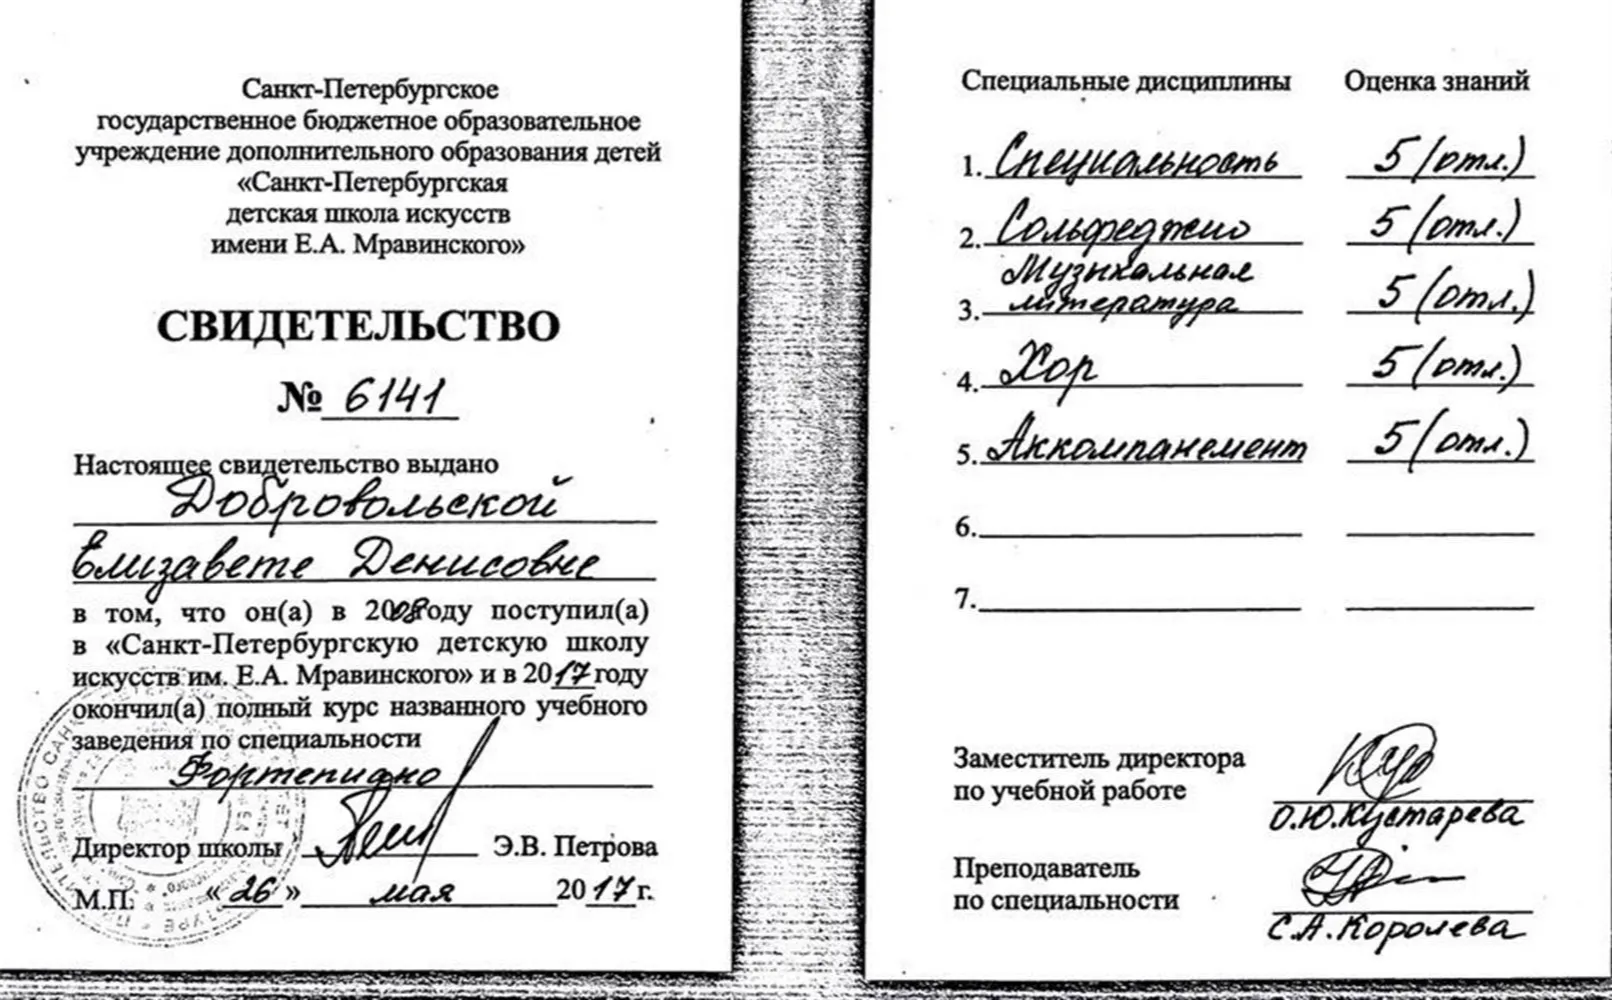 Санкт-Петербургское
государственное бюджетное образовательное
учреждение дополнительного образования детей
«Санкт-Петербургская
детская школа искусств
имени Е.А. Мравинского»
СВИДЕТЕЛЬСТВО
№ 6141
Настоящее свидетельство выдано
Добровольской
Елизавете Денисовне
в том, что он(а) в 2008 году поступил(а)
в «Санкт-Петербургскую детскую школу
искусств им. Е.А. Мравинского» и в 2017 году
окончил(а) полный курс названного учебного
заведения по специальности
Фортепиано
Директор школы Э.В. Петрова
М.П. «26» мая 2017 г.
Специальные дисциплины Оценка знаний
1. Специальность 5 (отл.)
2. Сольфеджио 5 (отл.)
Музыкальная
3. литература 5 (отл.)
4. Хор 5 (отл.)
5. Аккомпанемент 5 (отл.)
6.
7.
Заместитель директора
по учебной работе
О.Ю. Кустарева
Преподаватель
по специальности
С.А. Королева